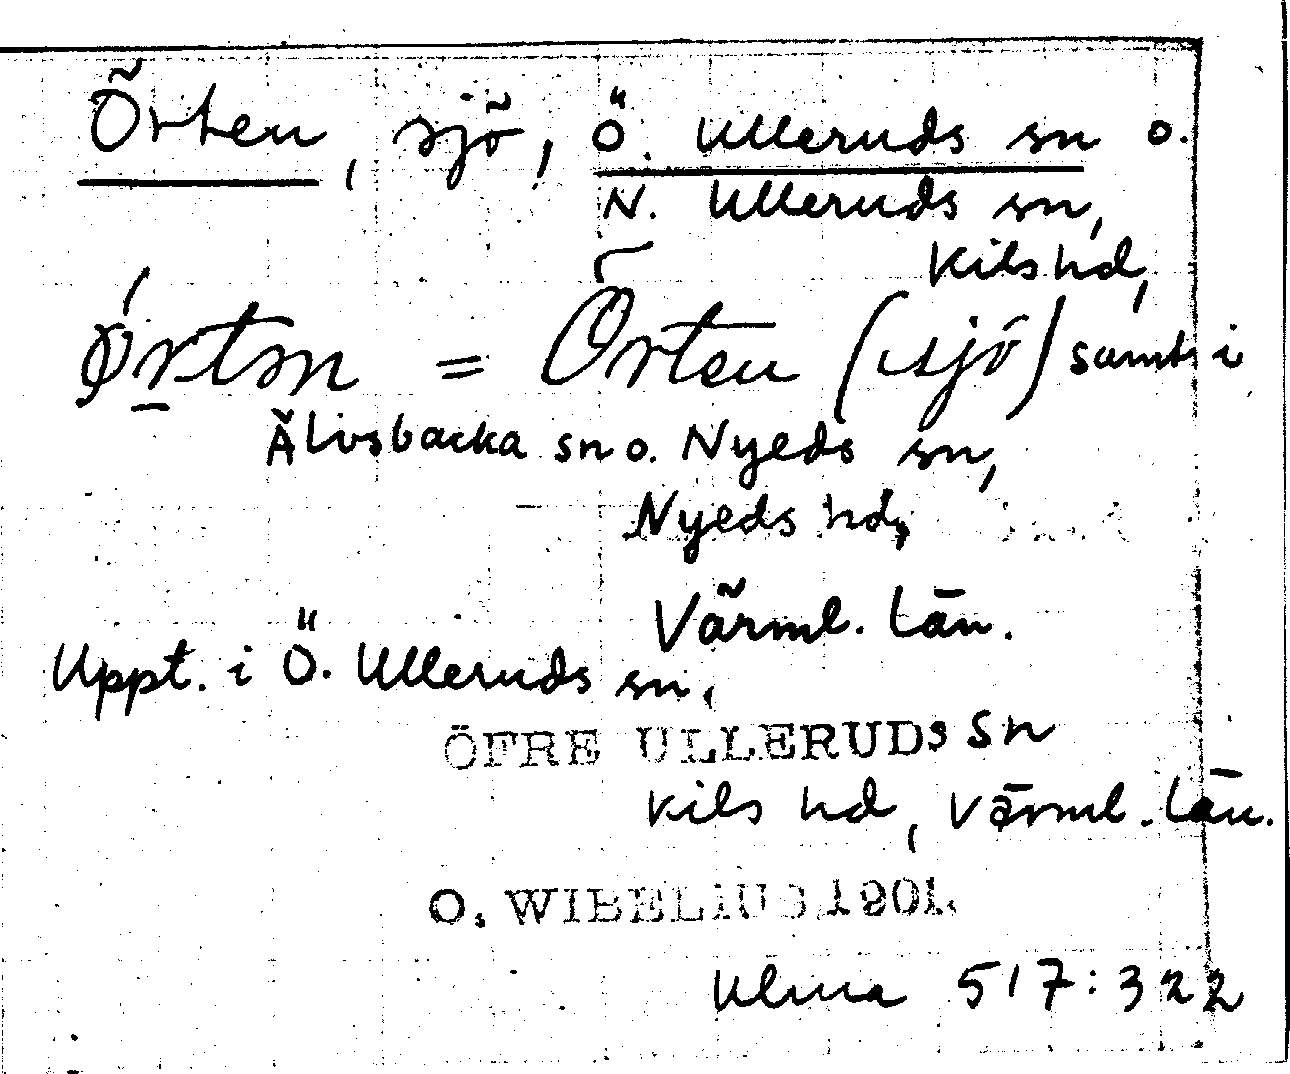 Örten, sjö, Ö. Ulleruds sn o.
N. Ulleruds sn,
Kils hd,
ǿrtn = Örten (sjö) samt i
Älvsbacka sn o. Nyeds sn,
Nyeds hd,
Värml. län.
Uppt. i Ö. Ulleruds sn,
ÖFRE ULLERUDs sn
Kils hd, Värml. län.
O. WIBELIUS 1901.
Ulma 517:322